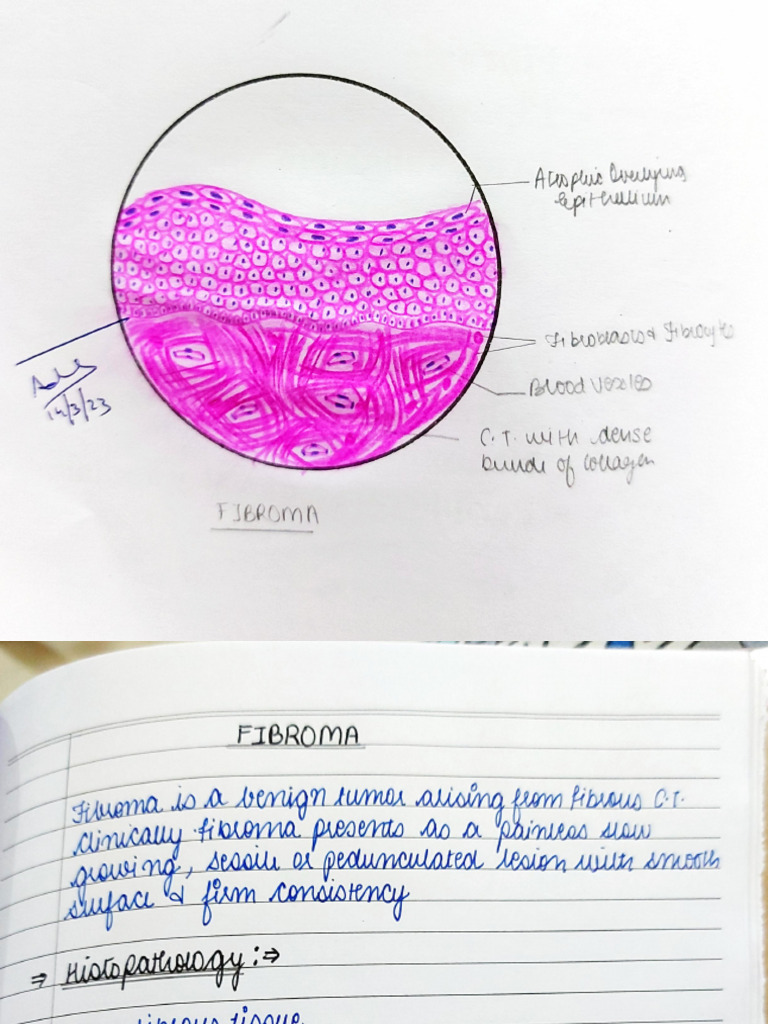 Atrophic Overlying
Epithelium
Fibroblasts & Fibrocyte
Blood Vessles
C.T. with dense
bundle of collagen
14/3/23
FIBROMA
FIBROMA
Fibroma is a benign tumor arising from fibrous C.T.
clinically fibroma presents as a painless slow
growing, sessile or pedunculated lesion with smooth
surface & firm consistency
⇒ Histopathology :⇒
fibrous tissue